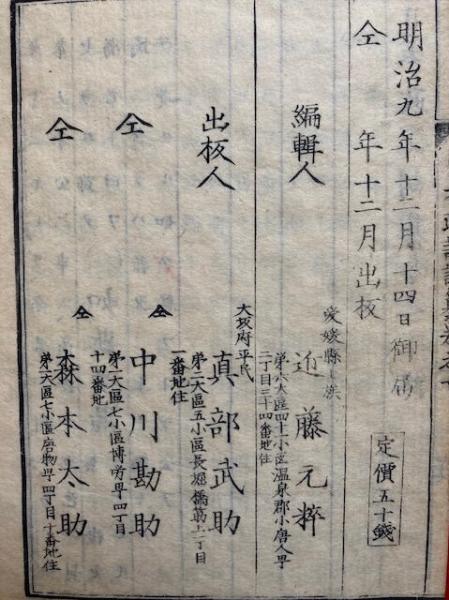 明治九年十二月十四日御届
仝 年十二月出板
定價五十錢
編輯人
愛媛縣士族
近藤元粹
第六大區四十一小區温泉郡小唐人甼
二丁目三十四番地住
出板人
大坂府平民
真部武助
第二大區五小區長堀橋筋上二丁目
一番地住
仝
仝
中川勘助
第一大區七小區博労甼四丁目
十四番地
仝
仝
森本太助
第一大區七小區唐物甼四丁目十番地住